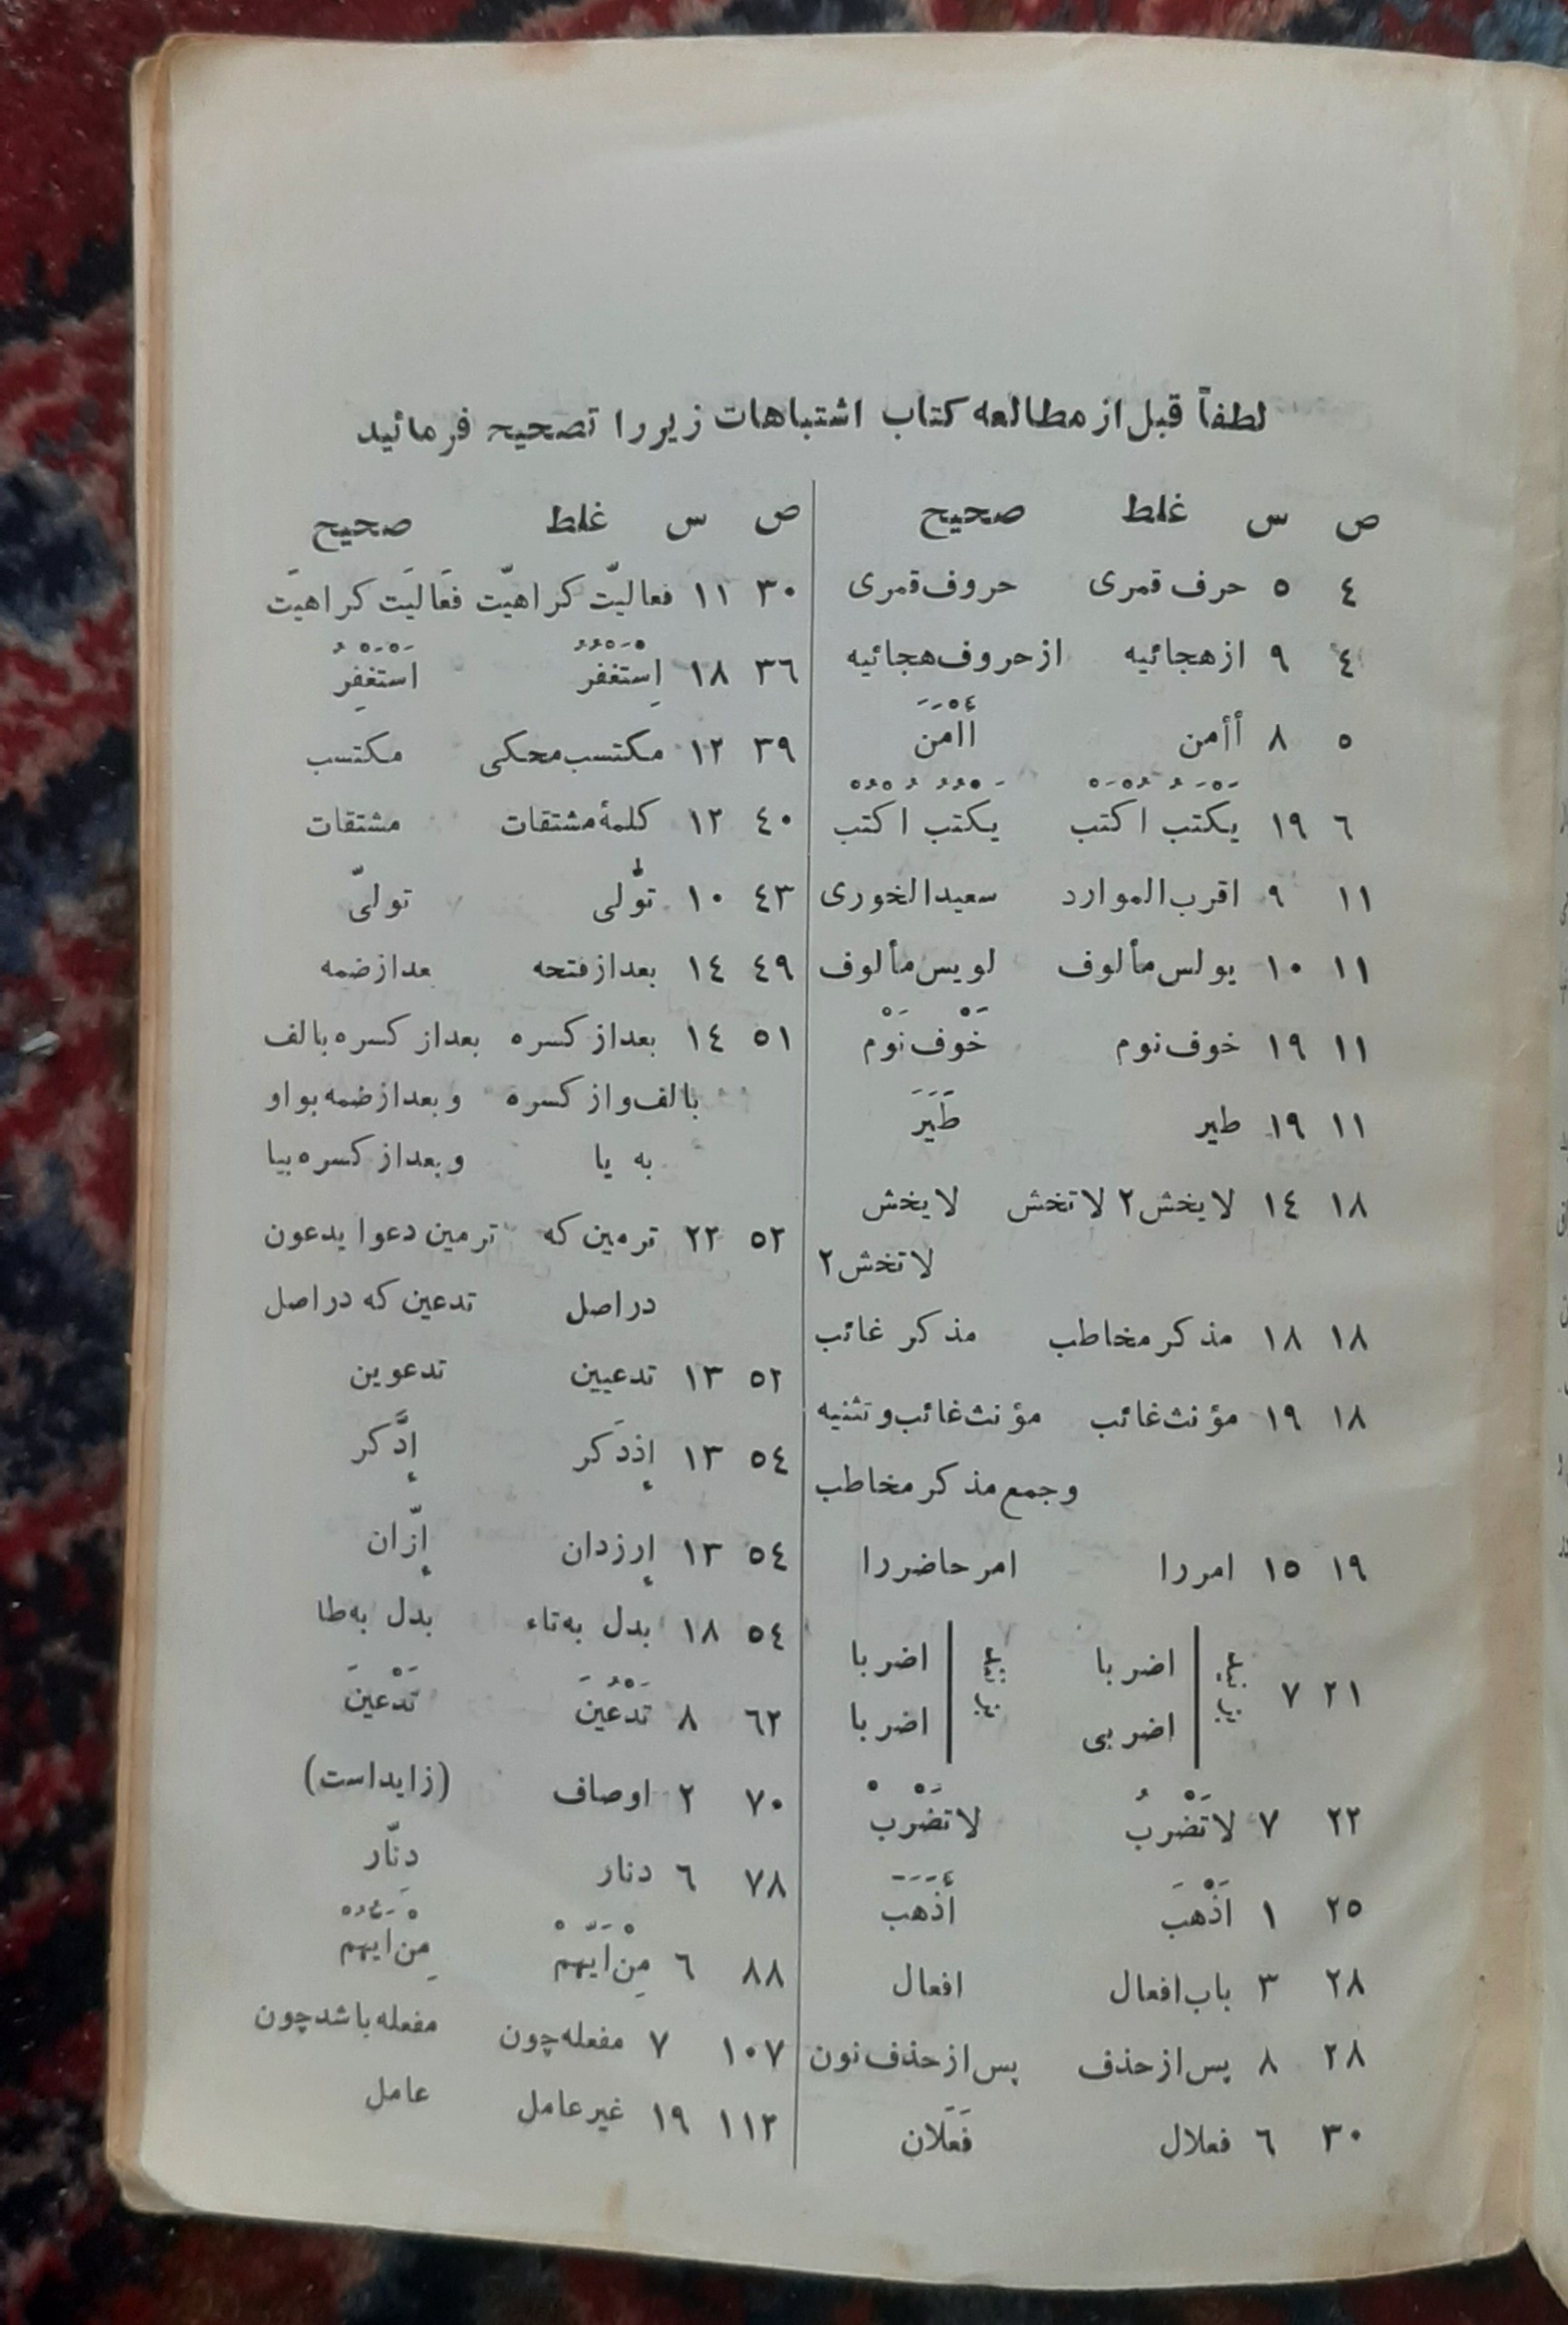 لطفاً قبل از مطالعه کتاب اشتباهات زیر را تصحیح فرمائید
ص س غلط صحیح
٤ ٥ حرف قمری حروف قمری
٤ ٩ از هجائیه از حروف هجائیه
٥ ٨ أأمن أَأْمَنَ
٦ ١٩ یکتب اکتب یکتب اکتب
١١ ٩ اقرب الموارد سعید الخوری
١١ ١٠ یولس مألوف لویس مألوف
١١ ١٩ خوف نوم خَوْف نَوْم
١١ ١٩ طیر طَیَرَ
١٨ ١٤ لایخش ٢ لاتخش لایخش
لاتخش ٢
١٨ ١٨ مذکر مخاطب مذکر غائب
١٨ ١٩ مؤنث غائب مؤنث غائب و تثنیه
و جمع مذکر مخاطب
١٩ ١٥ امر را امر حاضر را
٢١ ٧ اضربا اضربا
اضربی اضربا
٢٢ ٧ لاتَضْرِبُ لاتَضْرِبْ
٢٥ ١ اَذْهَبَ أَذَهَبَ
٢٨ ٣ باب افعال افعال
٢٨ ٨ پس از حذف پس از حذف نون
٣٠ ٦ فعلال فَعَلان
ص س غلط صحیح
٣٠ ١١ فعالیّت کراهیّت فَعَالیَت کراهیَت
٣٦ ١٨ اِستغفر اَسْتَغْفِرُ
٣٩ ١٢ مکتسب محکی مکتسب
٤٠ ١٢ کلمهٔ مشتقات مشتقات
٤٣ ١٠ تولی تولیّ
٤٩ ١٤ بعد از فتحه بعد از ضمه
٥١ ١٤ بعد از کسره بعد از کسره بالف
بالف و از کسره و بعد از ضمه بواو
به یا و بعد از کسره بیا
٥٢ ٢٢ ترمین که ترمین دعوا یدعون
در اصل تدعین که در اصل
٥٢ ١٣ تدعیین تدعوین
٥٤ ١٣ إذدَکر إدَّکر
٥٤ ١٣ إرزدان إزّان
٥٤ ١٨ بدل به تاء بدل به طا
٦٢ ٨ تَدْعُیْنَ تَدْعیْنَ
٧٠ ٢ اوصاف (زاید است)
٧٨ ٦ دنار دِنّار
٨٨ ٦ مِنْ اَیّهِمْ مِنْ أَیُهُمْ
١٠٧ ٧ مفعله چون مفعله باشد چون
١١٢ ١٩ غیر عامل عامل